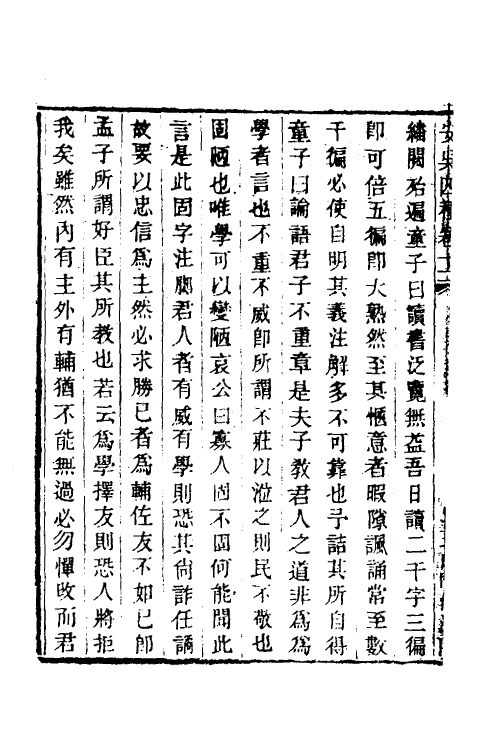 繙閱殆遍童子曰讀書泛覽無益吾日讀二千字三徧
卽可倍五徧卽大熟然至其愜意者暇隙諷誦常至數
千徧必使自明其義注解多不可靠也予詰其所自得
童子曰論語君子不重章是夫子敎君人之道非爲爲
學者言也不重不威卽所謂不莊以涖之則民不敬也
固陋也唯學可以變陋哀公曰寡人固不固何能聞此
言是此固字注腳君人者有威有學則恐其尙詐任譎
故要以忠信爲主然必求勝己者爲輔佐友不如己卽
孟子所謂好臣其所敎也若云爲學擇友則恐人將拒
我矣雖然內有主外有輔猶不能無過必勿憚改而君